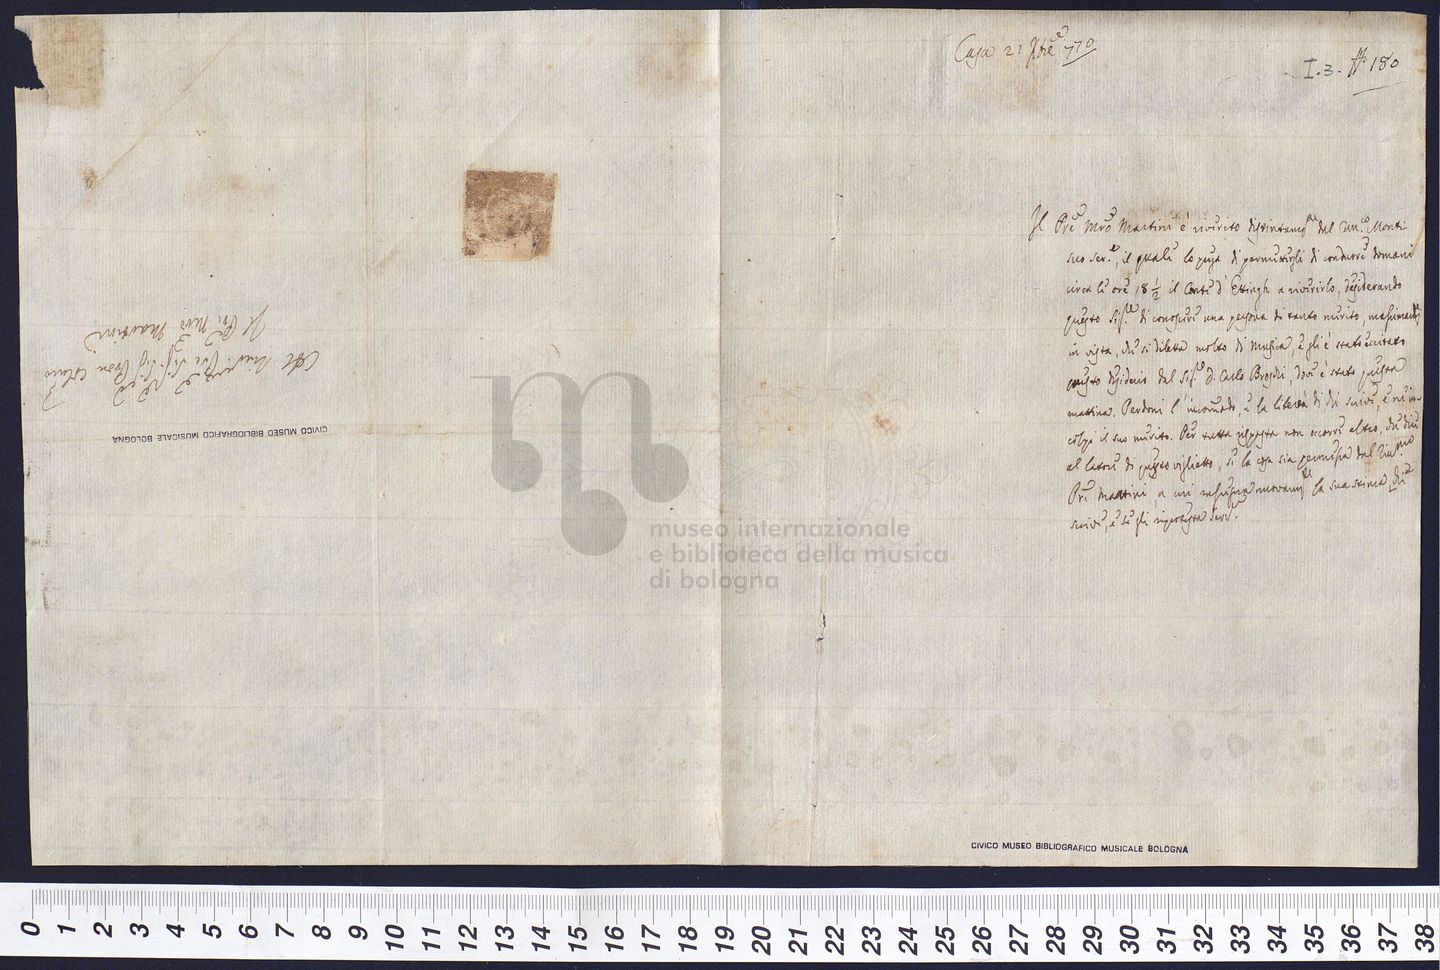 Casa 21 7bre 770
I.3. H. 180
Il Pre Mro Martini è riverito distintamte dal Can.co Monti
suo ser.e, il quale lo prega di permettergli di condurre domani
circa le ore 18 1/2 il Conte d' a riverirlo, desiderando
questo Sig.re di conoscere una persona di tanto merito, massimamte
in vista, che si diletta molto di Musica, e gli è stato eccitato
questo desiderio dal Sig.r D. Carlo Broschi, dove è stato questa
mattina. Perdoni l'incomodo, e la libertà di chi scrive, e ne in=
colpi il suo merito. Per tutta risposta non occorre altro, che dire
al latore di questo viglietto, se la cosa sia permessa dal
Pre Martini, a cui rassegna nuovamte la sua stima chi
scrive, e se gli riprotesta serv.e
Al
Il Pre Mro Martini
CIVICO MUSEO BIBLIOGRAFICO MUSICALE BOLOGNA
museo internazionale
e biblioteca della musica
di bologna
CIVICO MUSEO BIBLIOGRAFICO MUSICALE BOLOGNA
0 1 2 3 4 5 6 7 8 9 10 11 12 13 14 15 16 17 18 19 20 21 22 23 24 25 26 27 28 29 30 31 32 33 34 35 36 37 38